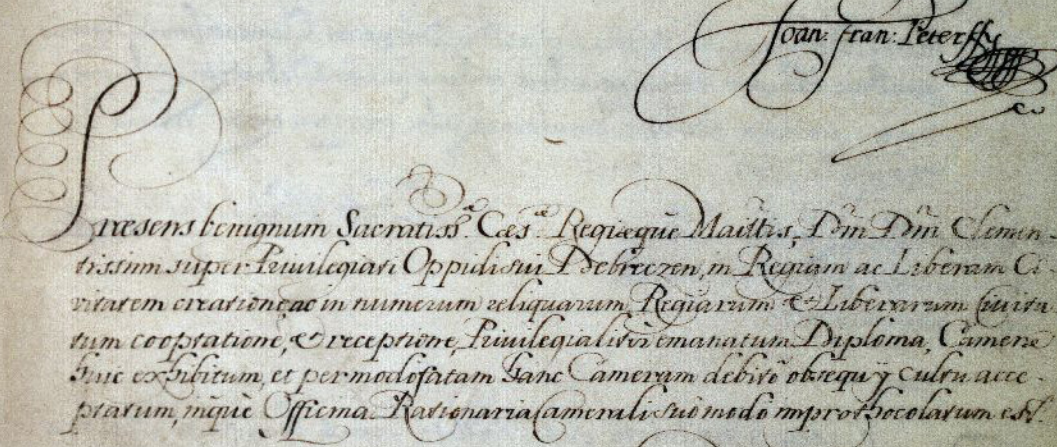 Joan: Fran: Peterffy
Præsens benignum Sacratiss.æ Cæs.æ Regiæque Maittis, Dñi Dñi Clemen-
tissimi super Privilegiati Oppidi sui Debreczen, in Regiam ac Liberam Ci
vitatem creatione, ac in numerum reliquarum Regiarum & Liberarum Civita
tum cooptatione, & receptione, Privilegialiter emanatum Diploma, Cameræ
huic exhibitum, et per modofatam hanc Cameram debito obsequÿ cultu acce
ptatum, inque Officina Rationaria Camerali suo modo improthocolatum est.